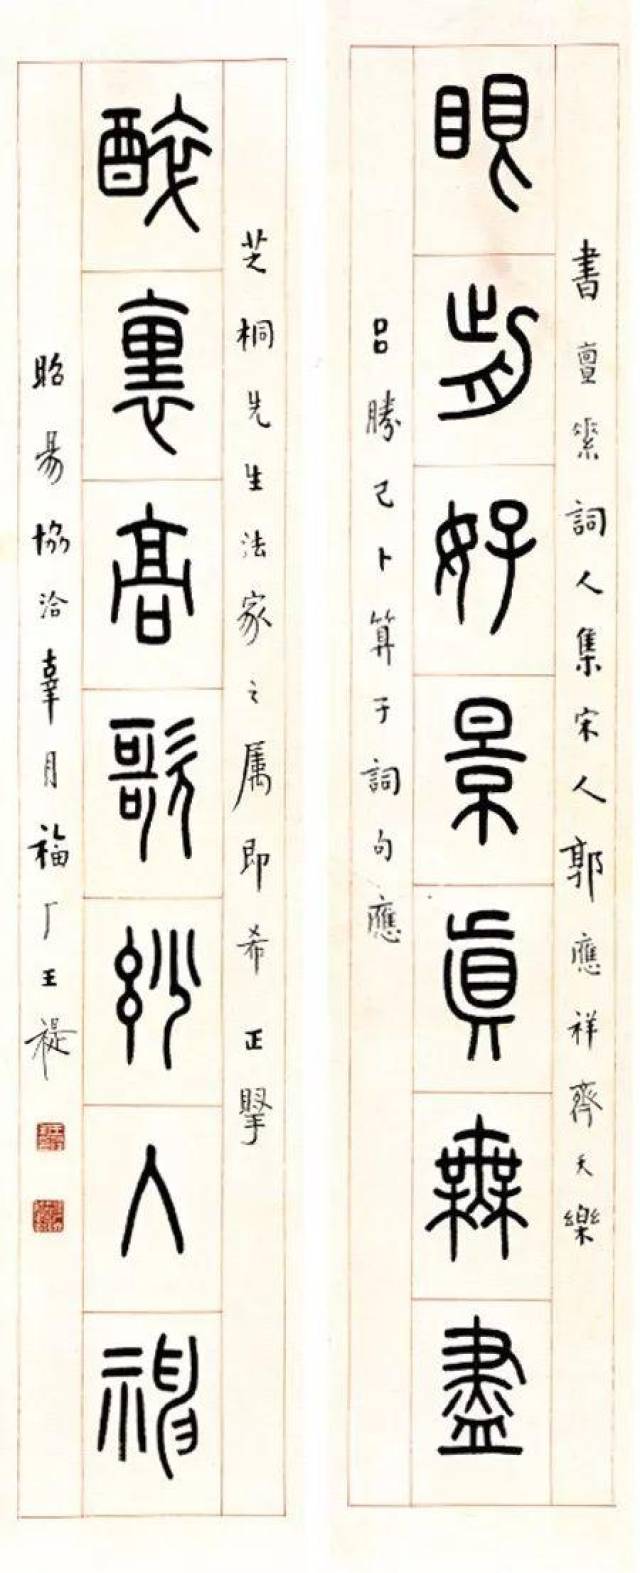 書亶素詞人集宋人郭應祥齊天樂
眼前好景眞無盡
呂勝己卜算子詞句應
芝桐先生法家之属即希正掔
醉裏高歌玅入神
昭昜協洽辜月福厂王禔